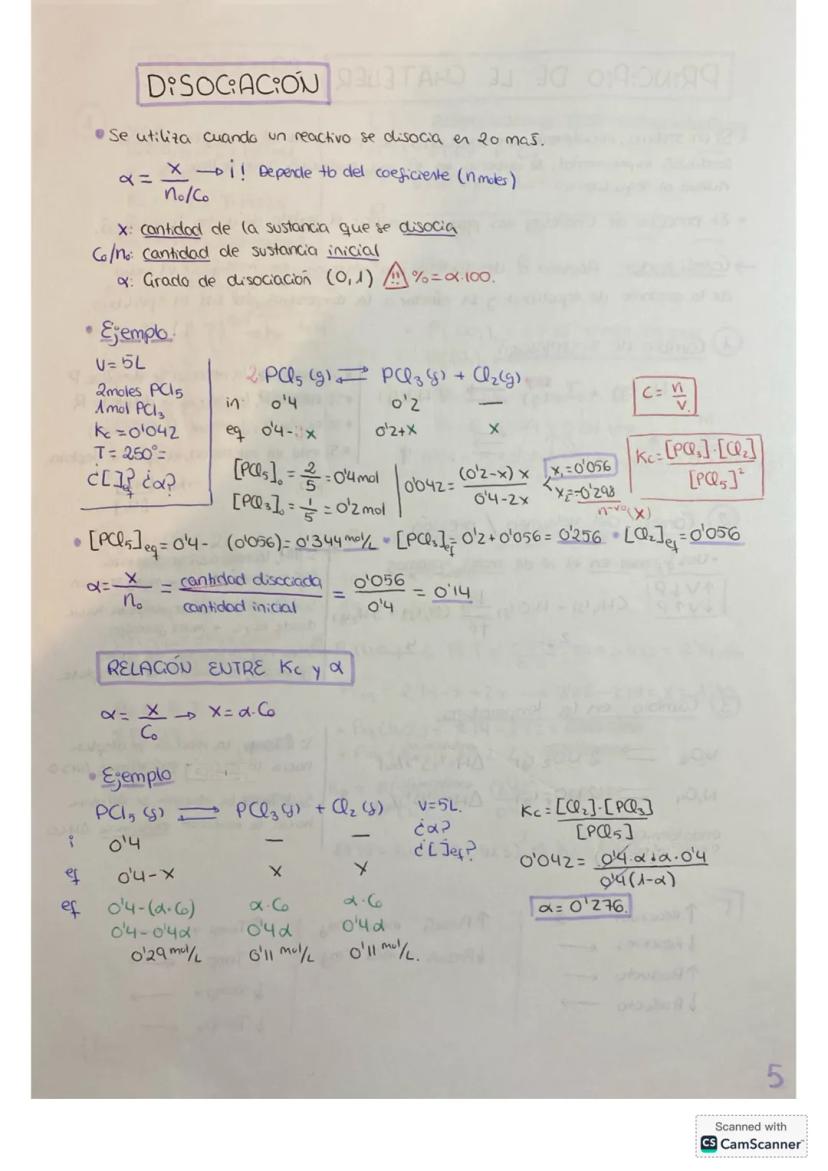 DISOCIACIÓN
• Se utiliza cuando un reactivo se disocia en 2 o mas.
α = x / n₀/C₀ → ¡! Depende tb del coeficiente (n moles)
x: cantidad de la sustancia que se disocia
C₀/n₀: cantidad de sustancia inicial
α: Grado de disociación (0,1) ⚠ % = α·100.
• Ejemplo.
V = 5L
2moles PCl₅
1mol PCl₃
Kc = 0'042
T = 250º =
¿[ ]? ef ¿α?
2 PCl₅ (g) ⇌ PCl₃ (g) + Cl₂(g)
in 0'4 0'2 —
eq 0'4- x 0'2+x x
[PCl₅]₀ = 2/5 = 0'4 mol
[PCl₃]₀ = 1/5 = 0'2 mol
0'042 = (0'2-x) x / 0'4-2x
x₁ = 0'056
x₂ = -0'298
n-vo (X)
C = n/V.
Kc = [PCl₃]·[Cl₂] / [PCl₅]²
• [PCl₅]eq = 0'4 - (0'056) = 0'344 mol/L • [PCl₃]ef = 0'2 + 0'056 = 0'256 • [Cl₂]ef = 0'056
α = x / n₀ = cantidad disociada / cantidad inicial = 0'056 / 0'4 = 0'14
RELACIÓN ENTRE Kc y α
α = x / C₀ → x = α·C₀
• Ejemplo
PCl₅ (g) ⇌ PCl₃ (g) + Cl₂ (g)
i 0'4 — —
ef 0'4-x x x
ef 0'4-(α·C₀) α·C₀ α·C₀
0'4-0'4α 0'4α 0'4α
0'29 mol/L 0'11 mol/L 0'11 mol/L.
V=5L.
¿α?
¿[ ]ef?
Kc = [Cl₂]·[PCl₃] / [PCl₅]
0'042 = 0'4·α+α·0'4 / 0'4(1-α)
α = 0'276.
5
Scanned with
CS CamScanner